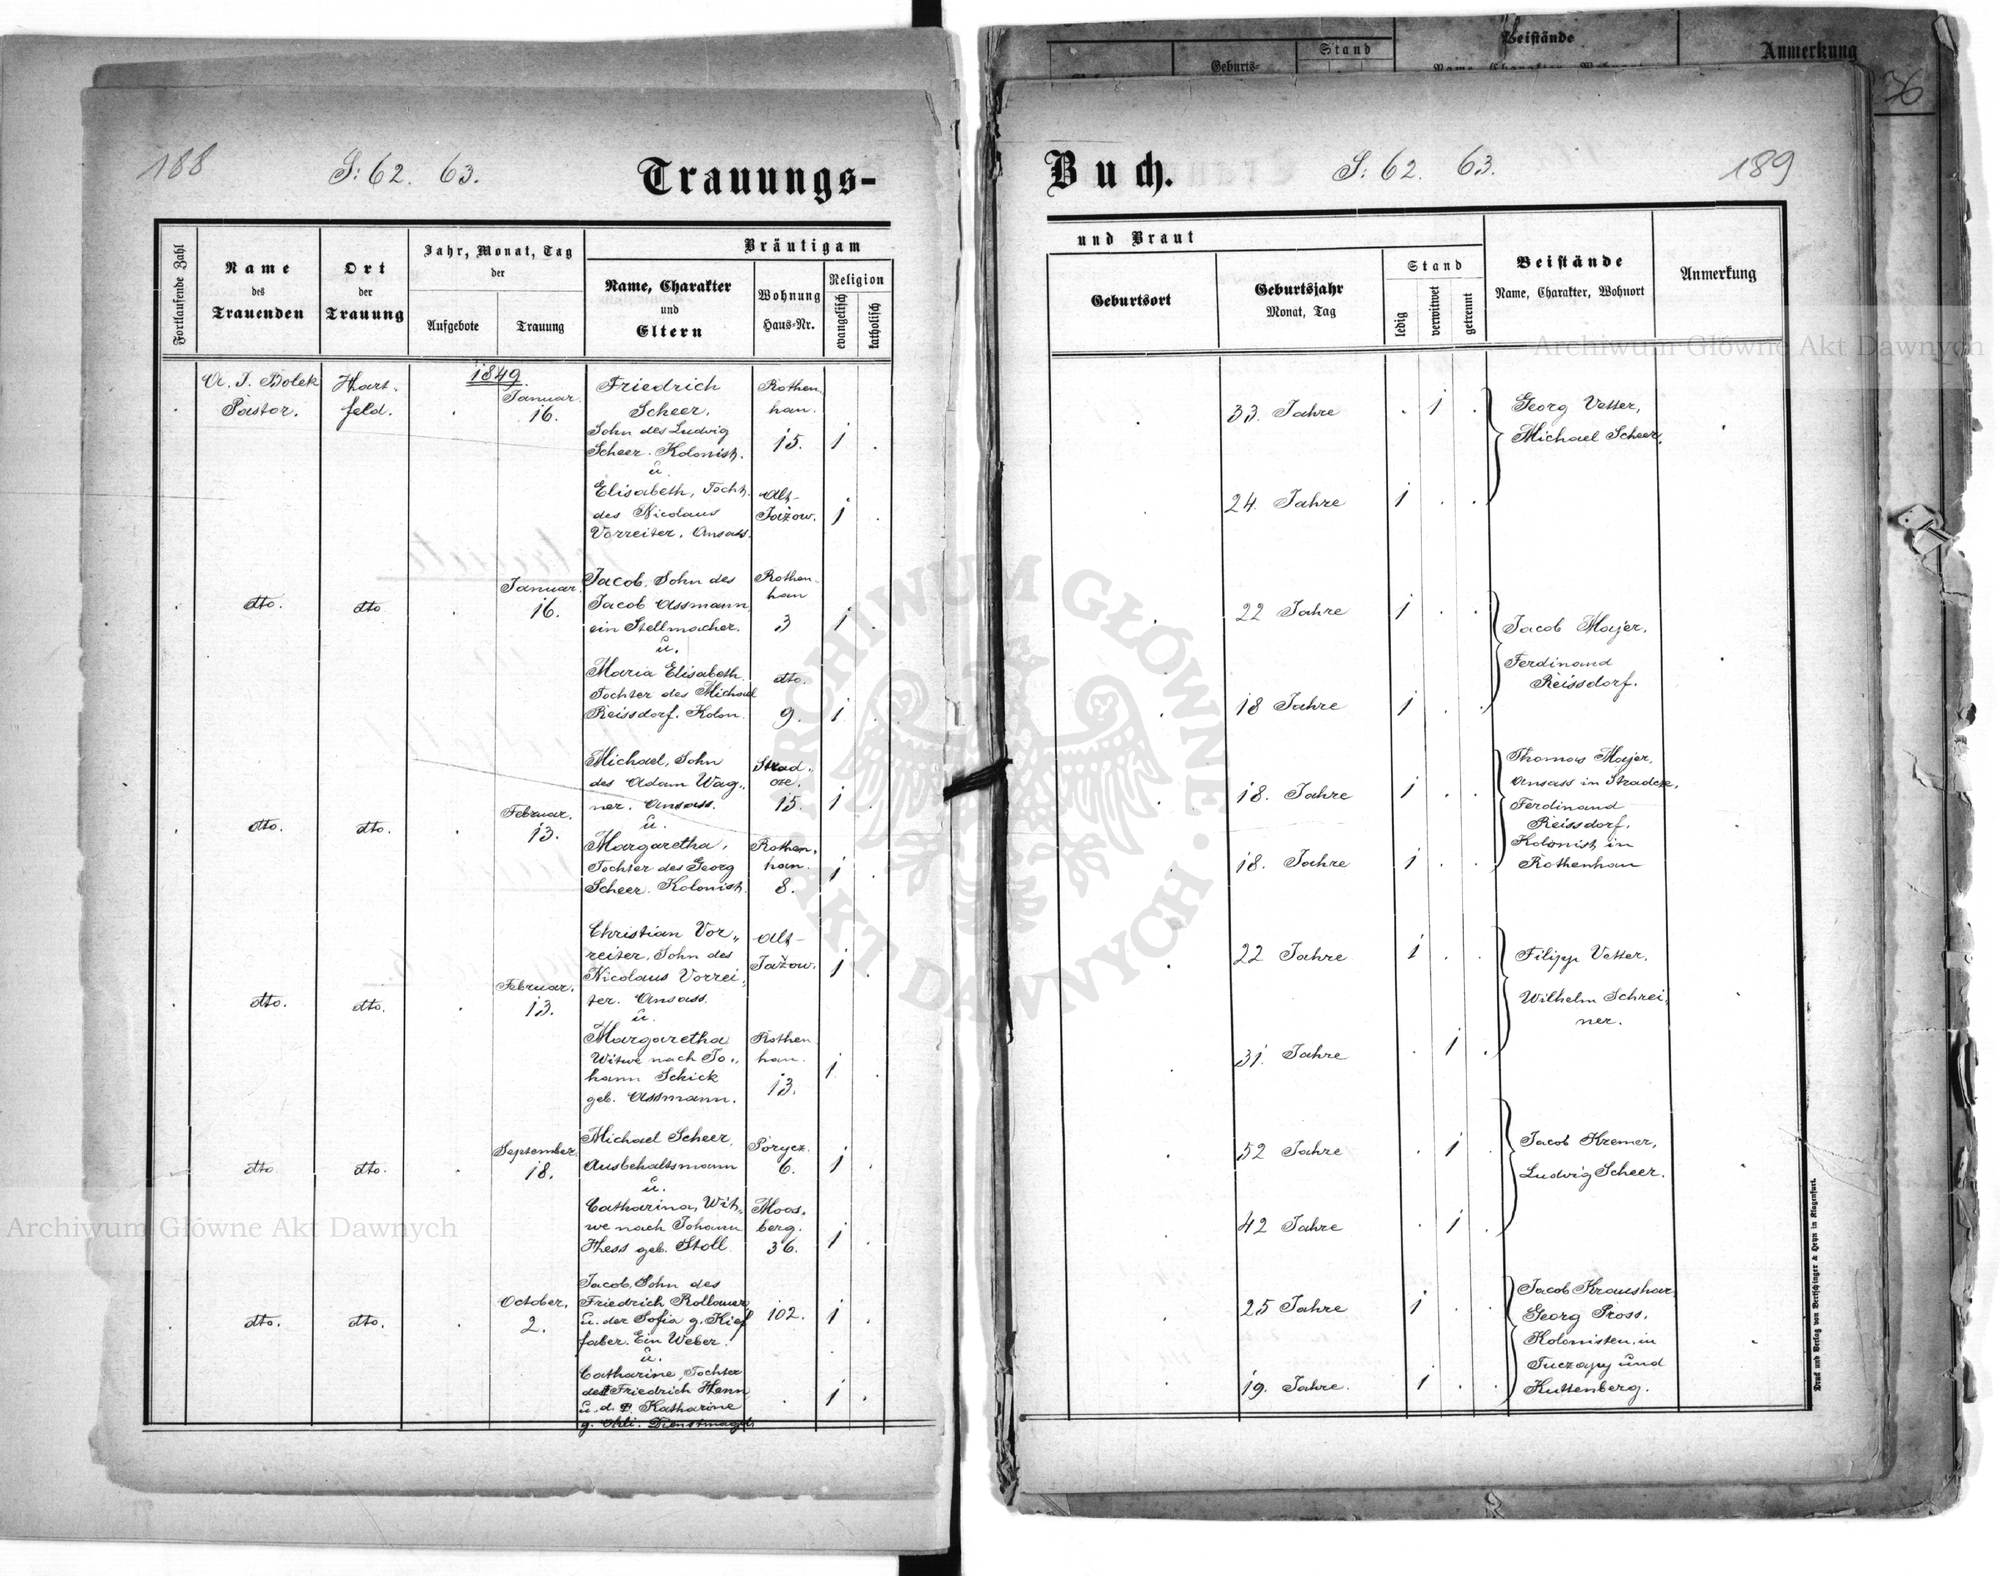 188
S: 62. 63.
Trauungs-
Fortlaufende Zahl
Name
des
Trauenden
Ort
der
Trauung
Jahr, Monat, Tag
der
Aufgebote
Trauung
Bräutigam
Name, Charakter
und
Eltern
Wohnung
Haus-Nr.
Religion
evangelisch
katholisch
1849.
A. J. Bolek
Pastor.
Hart-
feld.
Januar.
16.
Friedrich
Scheer,
Sohn des Ludwig
Scheer. Kolonist.
u.
Rothen
han.
15.
1
Elisabeth, Tocht.
des Nicolaus
Vorreiter, Ansass.
Alt-
Jažow.
1
dto.
dto
Januar.
16.
Jacob, Sohn des
Jacob Assmann
ein Stellmacher.
u.
Rothen-
han
3
1
Maria Elisabeth
Tochter des Michael
Reissdorf. Kolon.
dto.
9.
1
dto.
dto.
Februar.
13.
Michael, Sohn
des Adam Wag-
ner. Ansass.
u.
Strad-
cze.
15.
1
Margaretha,
Tochter des Georg
Scheer. Kolonist.
Rothen-
han.
8.
1
dto.
dto.
Februar.
13.
Christian Vor-
reiter, Sohn des
Nicolaus Vorrei-
ter. Ansass.
u.
Alt-
Jažow.
1
Margaretha
Witwe nach Jo-
hann Schick
geb. Assmann.
Rothen
han.
13.
1
dto.
dto.
September.
18.
Michael Scheer,
Ausbehaltsmann
u.
Porycz.
6.
1
Catharina, Wit-
we nach Johann
Hess geb. Stoll.
Moos-
berg.
36.
1
dto.
dto.
October.
2.
Jacob, Sohn des
Friedrich Rollauer
u. der Sofia g. Kief
faber. Ein Weber.
u.
102.
1
Catharine, Tochter
des Friedrich Henn
u. d. Katharine
g. Ohli. Dienstmagd.
1
Buch.
S: 62. 63.
189
und Braut
Geburtsort
Geburtsjahr
Monat, Tag
Stand
ledig
verwitwet
getrennt
Beistände
Name, Charakter, Wohnort
Anmerkung
33. Jahre
1
Georg Vetter,
Michael Scheer.
24. Jahre
1
22 Jahre
1
Jacob Majer,
Ferdinand
Reissdorf.
18 Jahre
1
18. Jahre
1
Thomas Majer,
Ansass in Stradcze,
Ferdinand
Reissdorf,
Kolonist in
Rothenhan
18. Jahre
1
22 Jahre
1
Filipp Vetter,
Wilhelm Schrei-
ner.
31. Jahre
1
52 Jahre
1
Jacob Kremer,
Ludwig Scheer.
42 Jahre
1
25 Jahre
1
Jacob Kraushar
Georg Pross,
Kolonisten in
Tuczapy und
Kuttenberg.
19. Jahre.
1
Druck und Verlag von Bertschinger & Heyn in Klagenfurt.
Stand
Geburts-
Beistände
Name, Charakter, Wohnort
Anmerkung
36
Archiwum Główne Akt Dawnych
Archiwum Główne Akt Dawnych
ARCHIWUM GŁÓWNE · AKT DAWNYCH ·